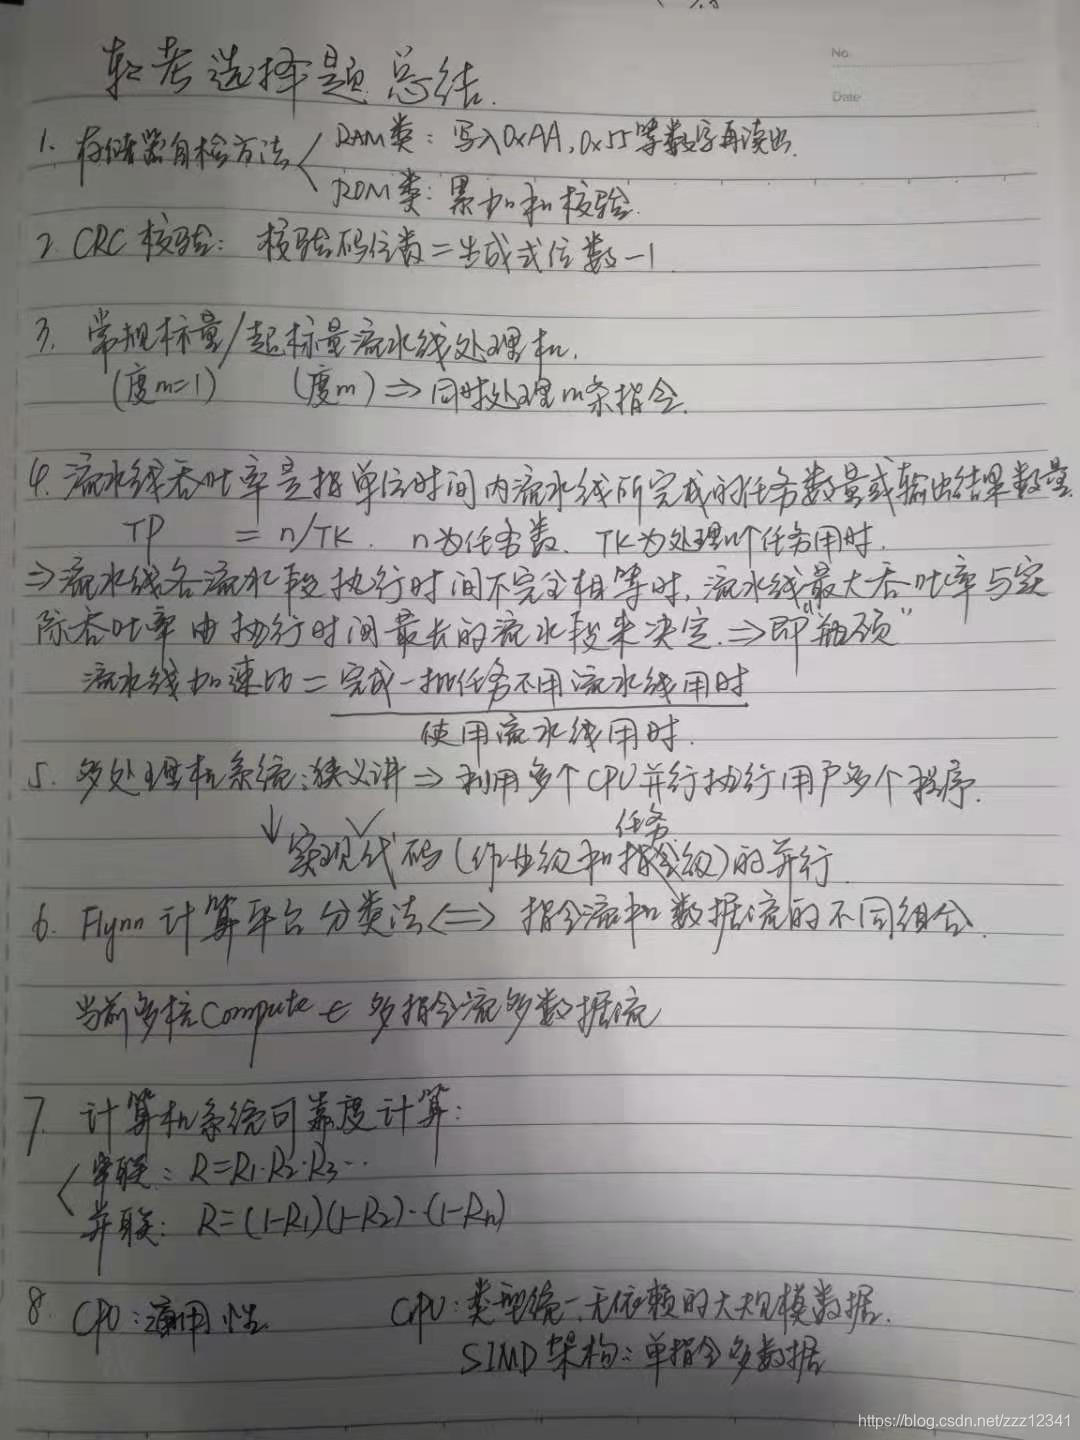 软考选择题总结.
No.
Date
1. 存储器自检方法 RAM类: 写入0xAA, 0x55等数字再读出.
ROM类: 累加和校验.
2. CRC 校验: 校验码位数=生成式位数-1.
3. 常规标量/超标量流水线处理机.
(度m=1) (度m) ⇒ 同时处理m条指令.
4. 流水线吞吐率是指单位时间内流水线所完成的任务数量或输出结果数量.
TP = n/TK. n为任务数. TK为处理n个任务用时.
⇒流水线各流水段执行时间不完全相等时, 流水线最大吞吐率与实
际吞吐率由执行时间最长的流水段来决定. ⇒即"瓶颈"
流水线加速比 = 完成一批任务不用流水线用时
使用流水线用时.
5. 多处理机系统: 狭义讲 ⇒ 利用多个CPU并行执行用户多个程序.
任务
↓ 实现代码(作业级和指令级)的并行.
6. Flynn 计算平台分类法 ⇔ 指令流和数据流的不同组合.
当前多核Compute ∈ 多指令流多数据流
7. 计算机系统可靠度计算:
串联: R=R1·R2·R3···
并联: R=(1-R1)(1-R2)··(1-Rn)
8. CPU: 通用性 GPU: 类型统一、无依赖的大规模数据.
SIMD架构: 单指令多数据
https://blog.csdn.net/zzz12341